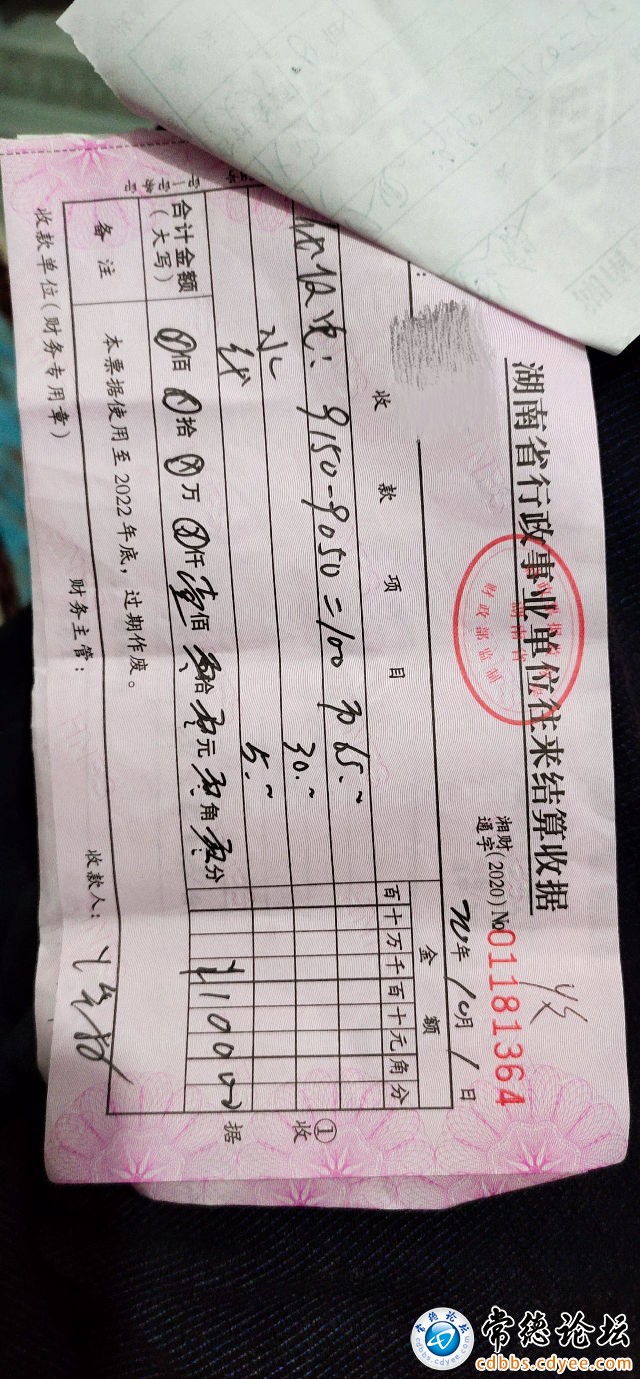 湖南省行政事业单位往来结算收据
湖南省
财政部监制
湘财通字(2020) №01181364
年10月1日
收款项目
金额
百十万千百十元角分
电: 9150-9050=100 65.~
水 30.~
5.~
¥10000
合计金额(大写)
佰拾万仟壹佰拾元角分
备注
本票据使用至2022年底,过期作废。
①收据
收款单位(财务专用章)
财务主管:
收款人:
常德论坛
cdbbs.cdyee.com